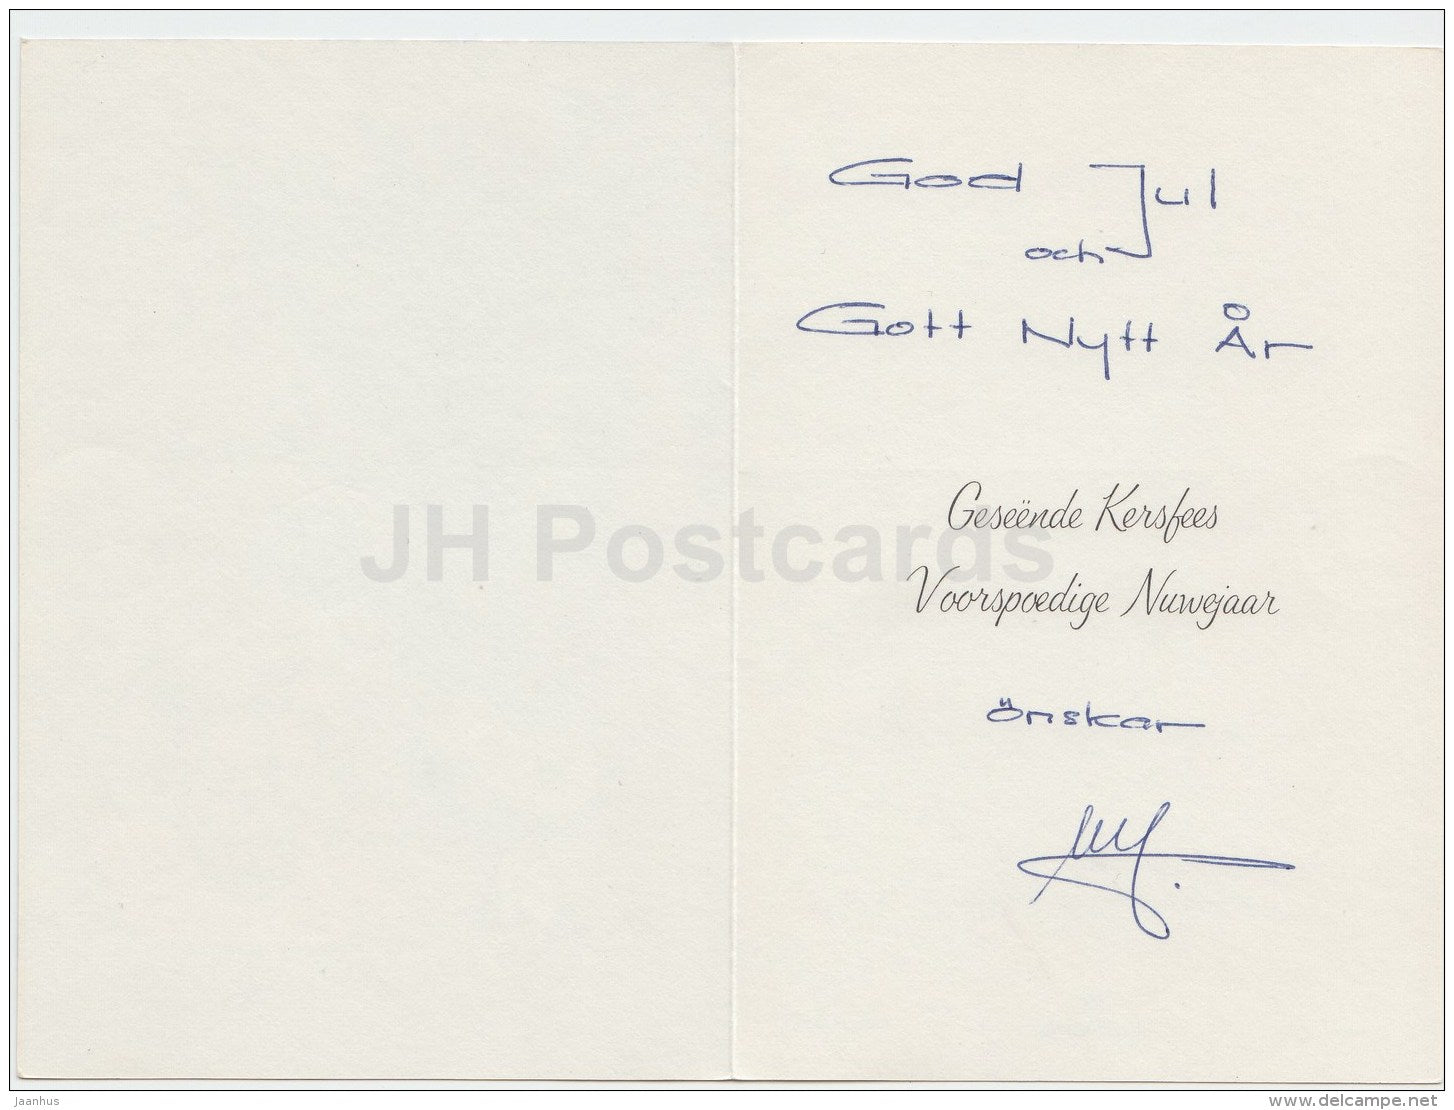 God Jul
och
Gott Nytt År
Geseënde Kersfees
JH Postcards
Voorspoedige Nuwejaar
önskar
Jaanhus
www.delcampe.net